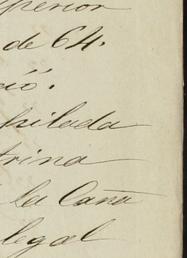 uperior
de 64.
ció.
philada
trina
la Caña
legal